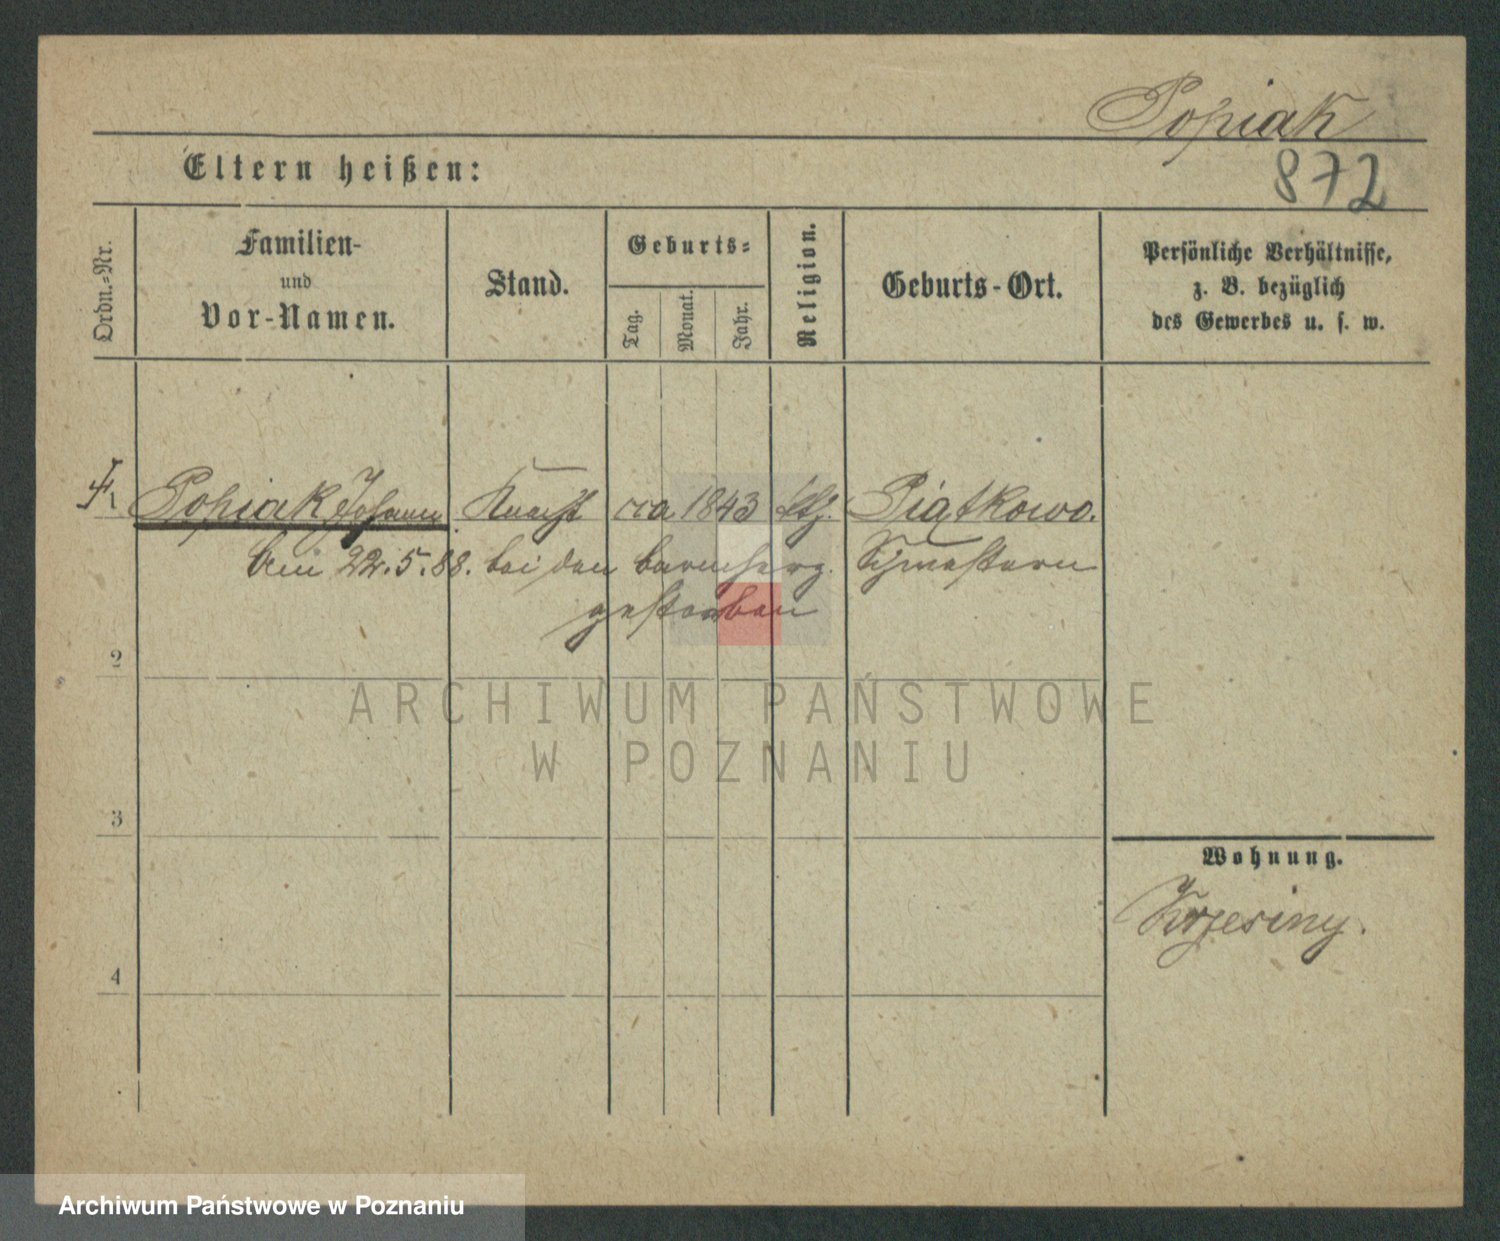 Popiak
872
Eltern heißen:
Ordn.-Nr.
Familien-
und
Vor-Namen.
Stand.
Geburts-
Tag.
Monat.
Jahr.
Religion.
Geburts-Ort.
Persönliche Verhältnisse,
z. B. bezüglich
des Gewerbes u. s. w.
1 Popiak Johann Knecht cca 1843 kth. Piątkowo.
Am 22.5.88. bei den barmherz. Schwestern
gestorben
2
3
4
Wohnung.
ARCHIWUM PAŃSTWOWE
W POZNANIU
Archiwum Państwowe w Poznaniu